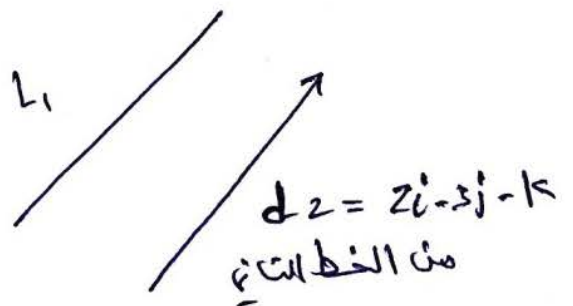 L₁
d2 = 2i-3j-k
من الخط الثاني